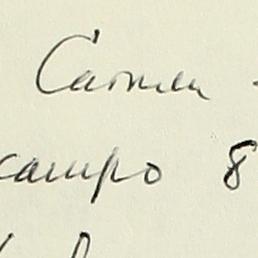 Carmen -
campo 8